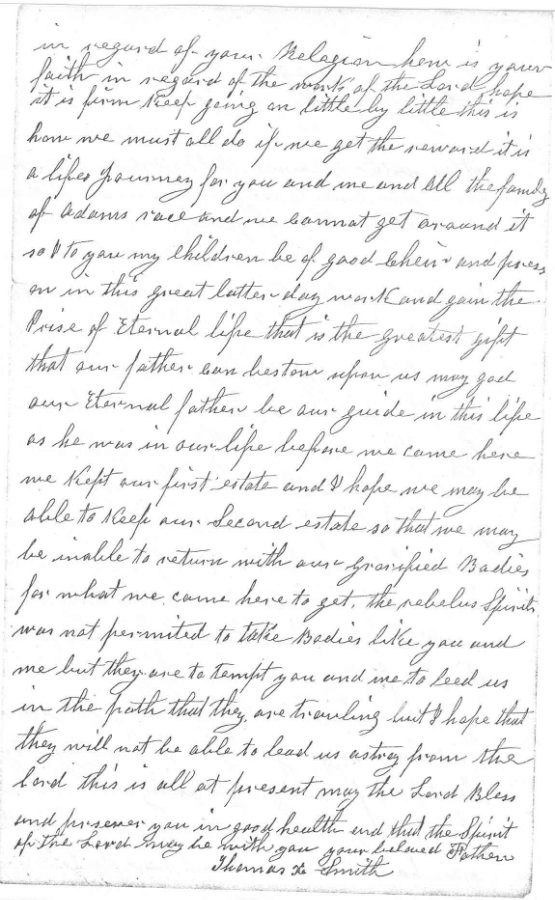 in regard of your Relegion how is your
faith in regard of the work of the Lord hope
it is firm Keep going on little by little this is
how we must all do if we get the reward it is
a lifes Journey for you and me and all the family
of Adams race and we Cannot get around it
so I to you my Children be of good Cheir and press
on in this great latter day work and gain the
Prise of Eternal life that is the greatest gift
that our father Can bestow upon us may god
our Eternal father be our guide in this life
as he was in our life before we came here
we Kept our first estate and I hope we may be
able to Keep our Second estate so that we may
be inable to return with our glorified Bodies
for what we came here to get. the rebelus Spirits
was not permitted to take Bodies like you and
me but they are to tempt you and me to leed us
in the path that they are travling but I hope that
they will not be able to lead us astray from the
lord this is all at present may the Lord Bless
and preserve you in good health and that the Spirit
of the Lord may be with you your beloved Father
Thomas X Smith